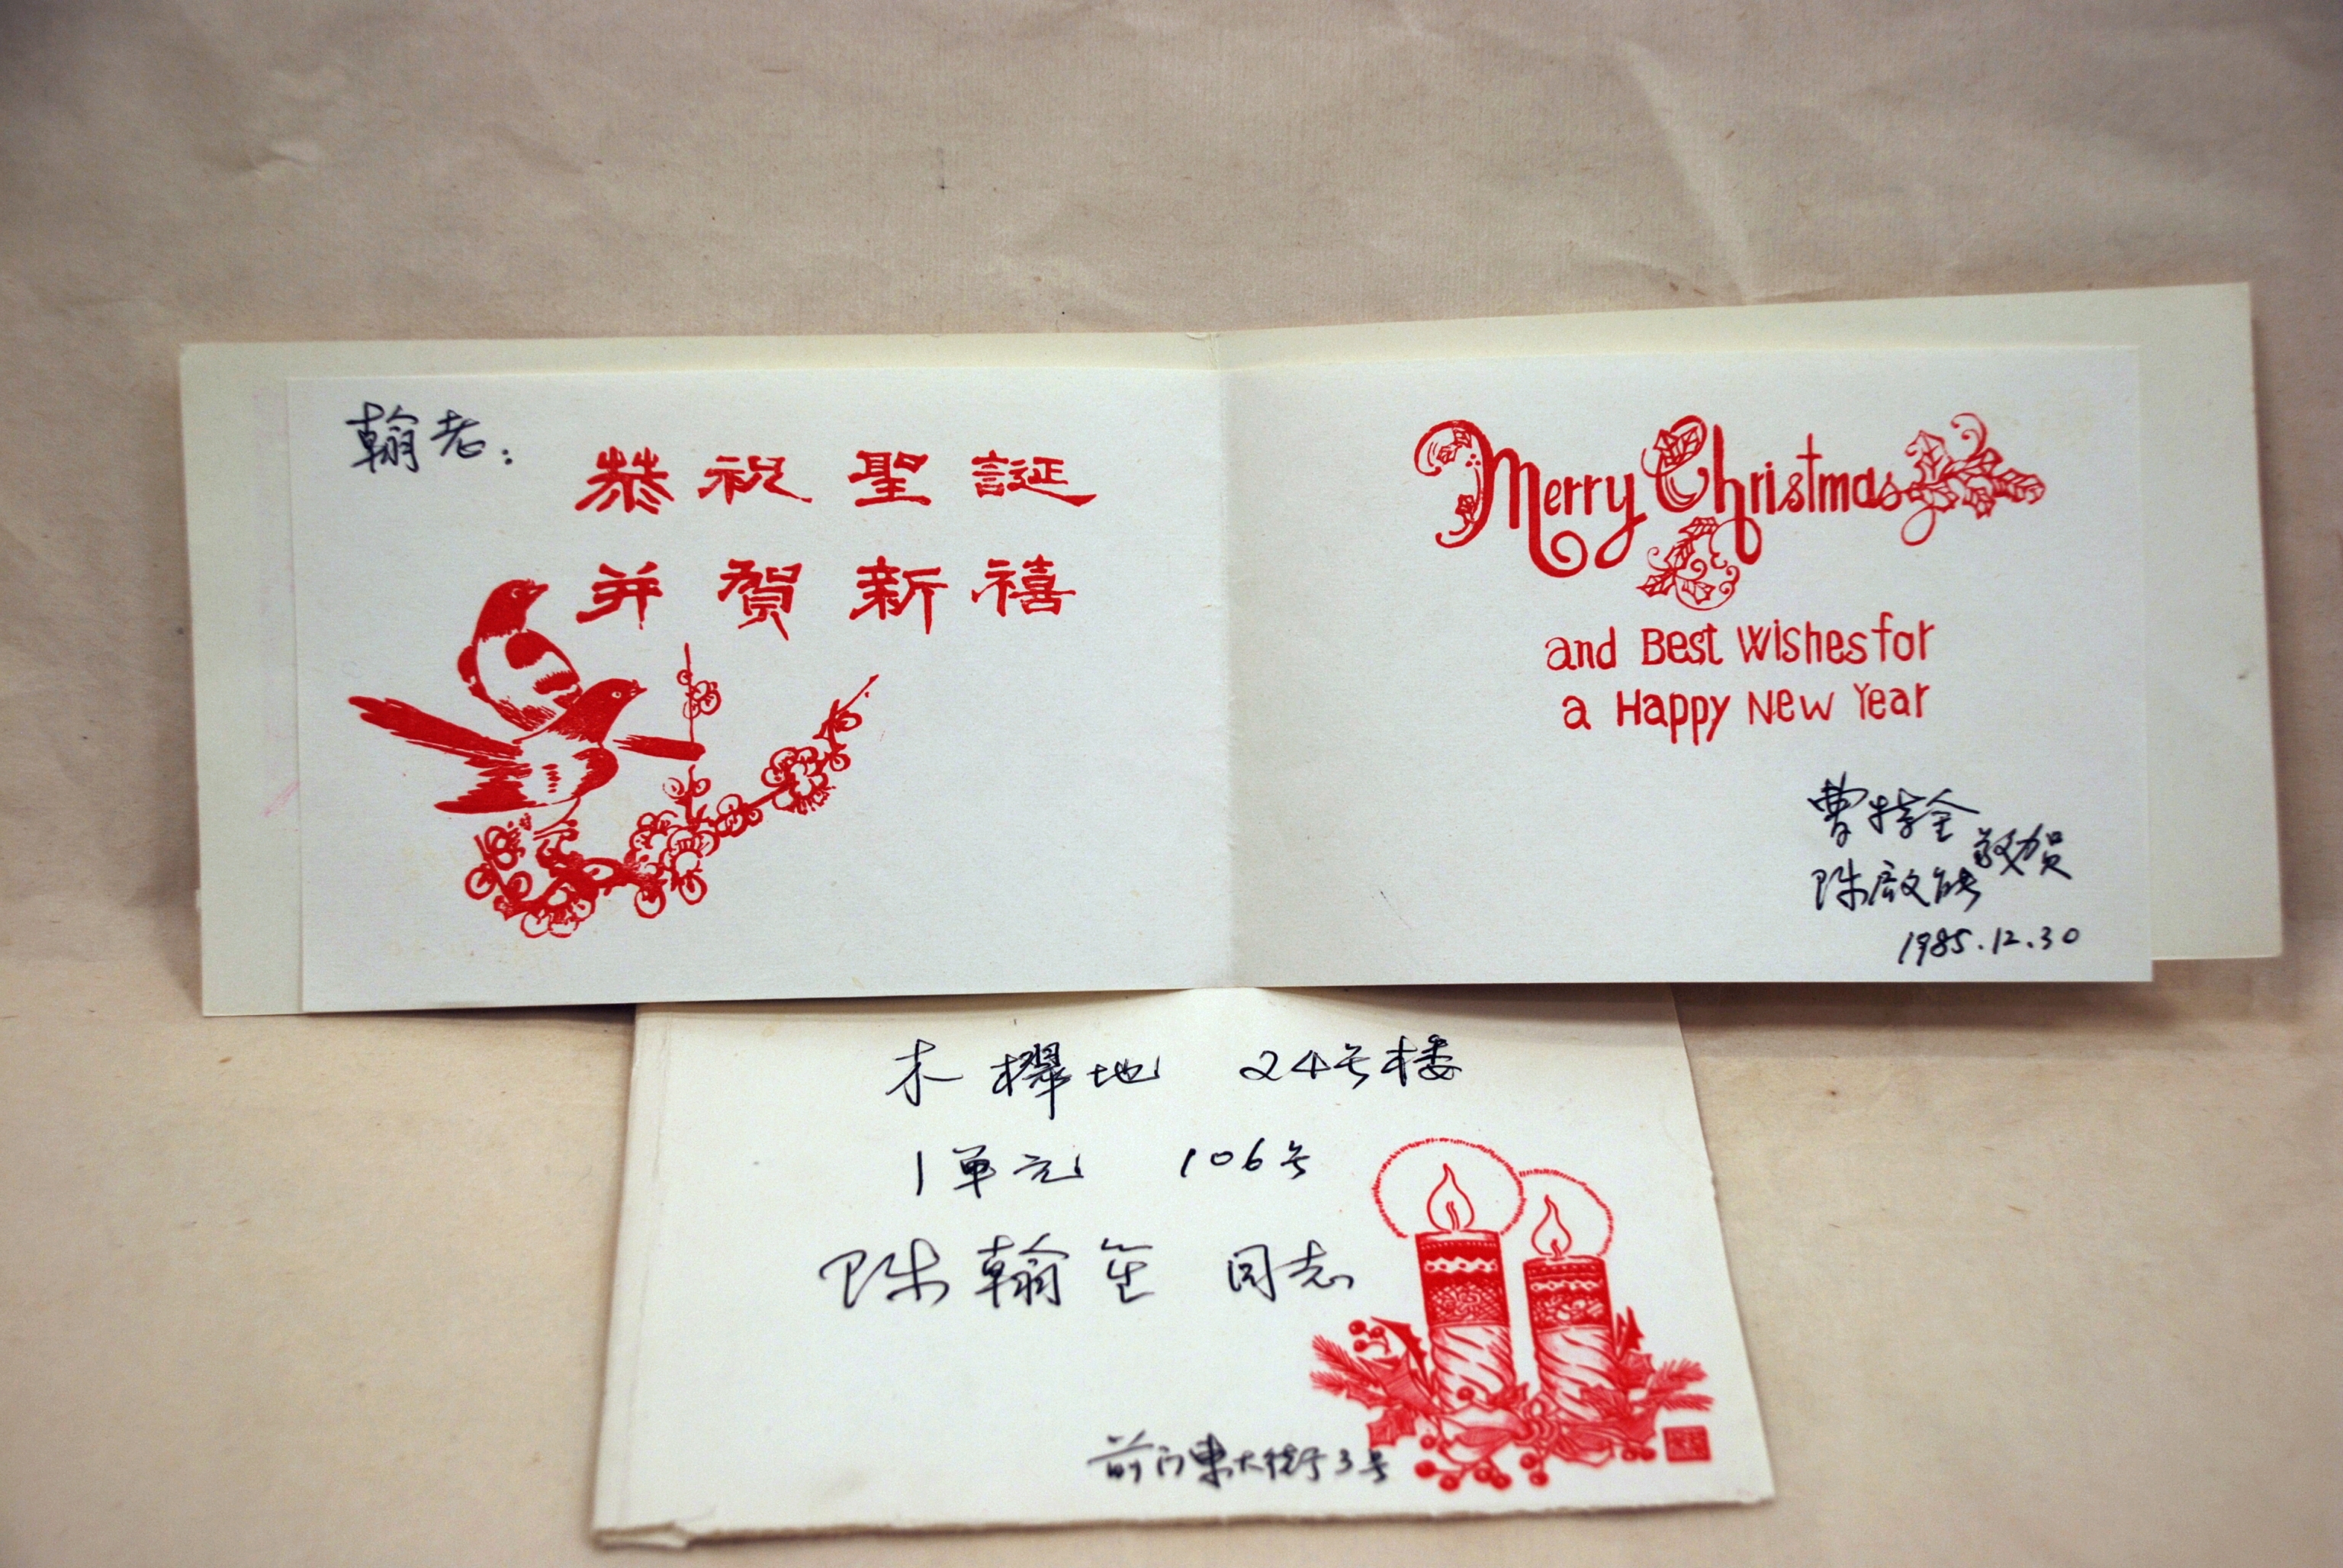 翰老：
恭祝聖誕
并賀新禧
Merry Christmas
and Best Wishes for
a Happy New Year
曹特金
陈启能 敬贺
1985.12.30
木樨地 24号楼
1单元 106号
陈翰笙 同志
前门東大街3号